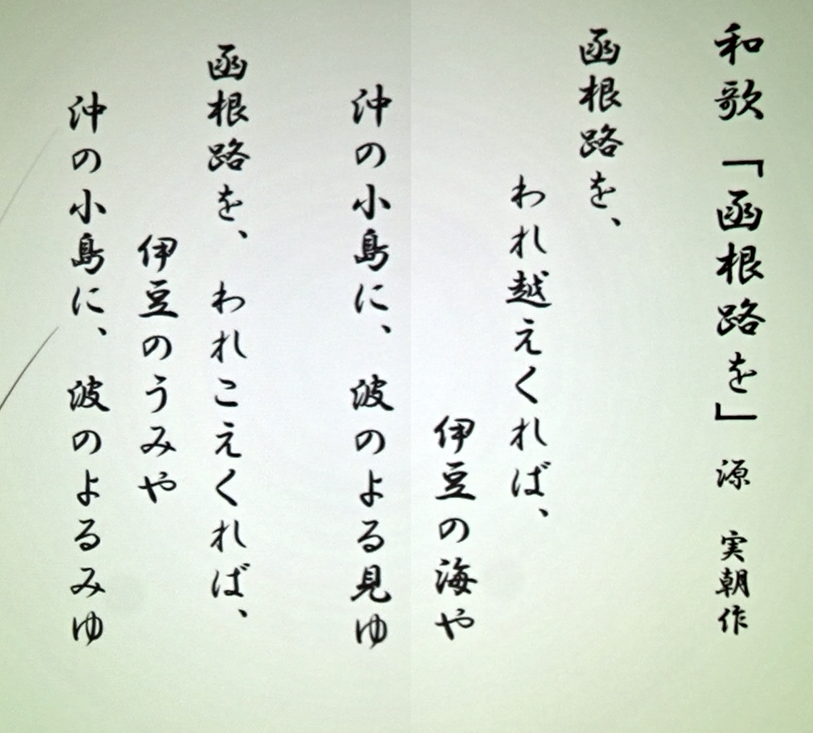 和歌「函根路を」源 実朝作
函根路を、
われ越えくれば、
伊豆の海や
沖の小島に、波のよる見ゆ
函根路を、われこえくれば、
伊豆のうみや
沖の小島に、波のよるみゆ